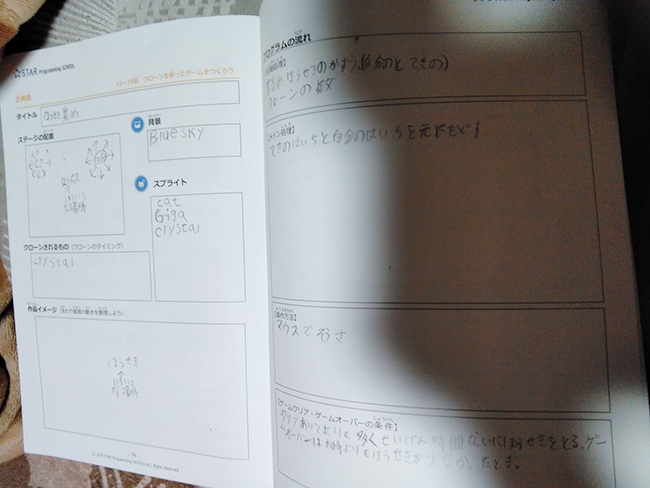 STAR Programming SCHOOL
クローンを使ったゲームをつくろう
企画書
タイトル
ステージの配置
ほうせき
いろいろ
な場所
背景
Blue sky
スプライト
cat
Giga
crystal
クローンされるもの(クローンのタイミング)
crystal
作品イメージ(流れや画面の動きを整理しよう)
ほうせき
いろいろ
な場所
- 14 -
プログラムの流れ
ほうせきのかず
クローンの数
【メイン処理】
てきのはいちと自分のはいちを元にもどす
【操作方法】
マウスでそうさ
【ゲームクリア・ゲームオーバーの条件】
クリアあいてより多くせいげん時間ないにほうせきをとる。ゲー
ムオーバーは